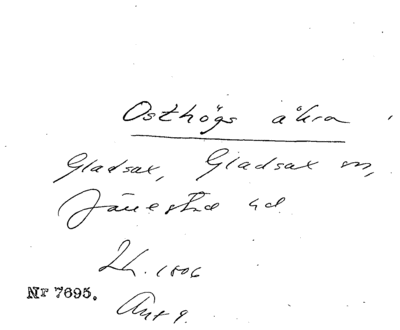 Osthögs åkra
Gladsax, Gladsax sn,
Järrestad hd
Lh. 1806
Nr 7695.
Akt 9.